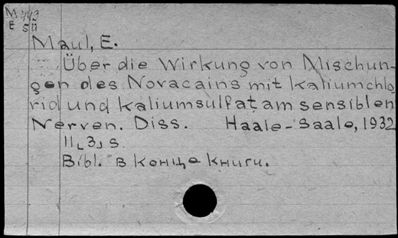 M 443
E 511
Maul, E.
Über die Wirkung von Mischun-
gen des Novacains mit Kaliumchlo
rid und Kaliumsulfat am sensiblen
Nerven. Diss. Haale-Saale, 1932
11[3] s.
Bibl. в конце книги.